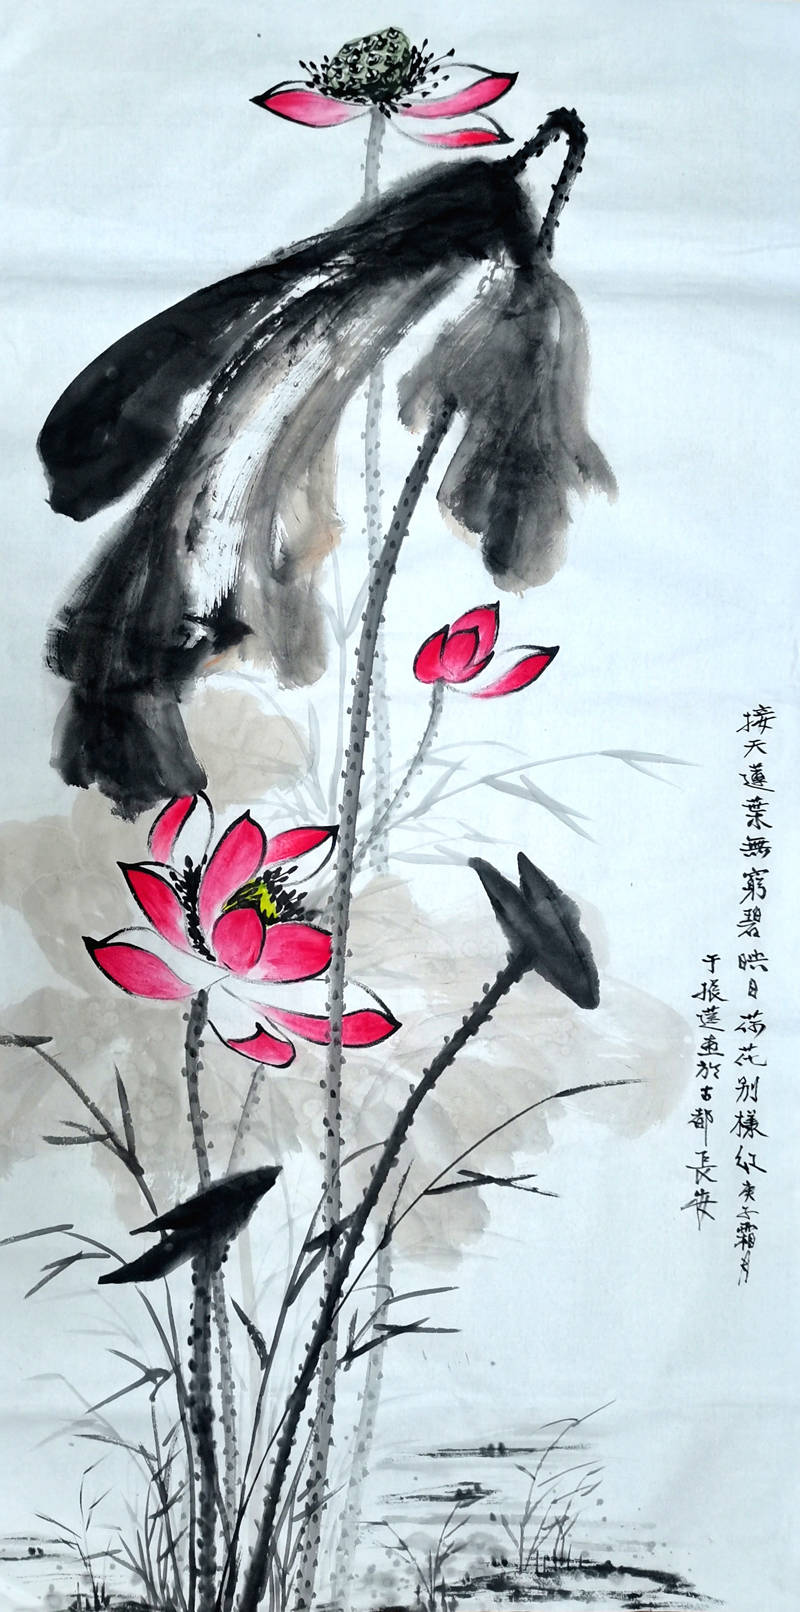 接天蓮葉無窮碧映日荷花别樣紅庚子霜月
于振蓮画於古都長安